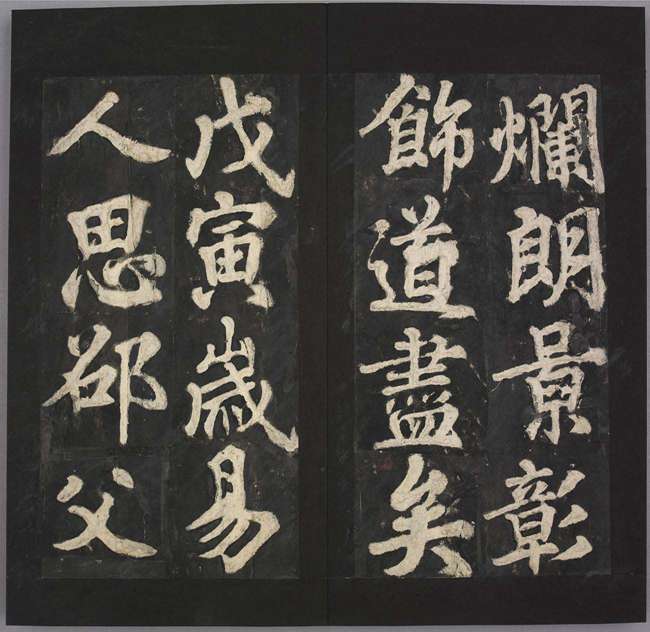 爛朗景彰
飾道盡矣
戊寅嵗易
人思邵父